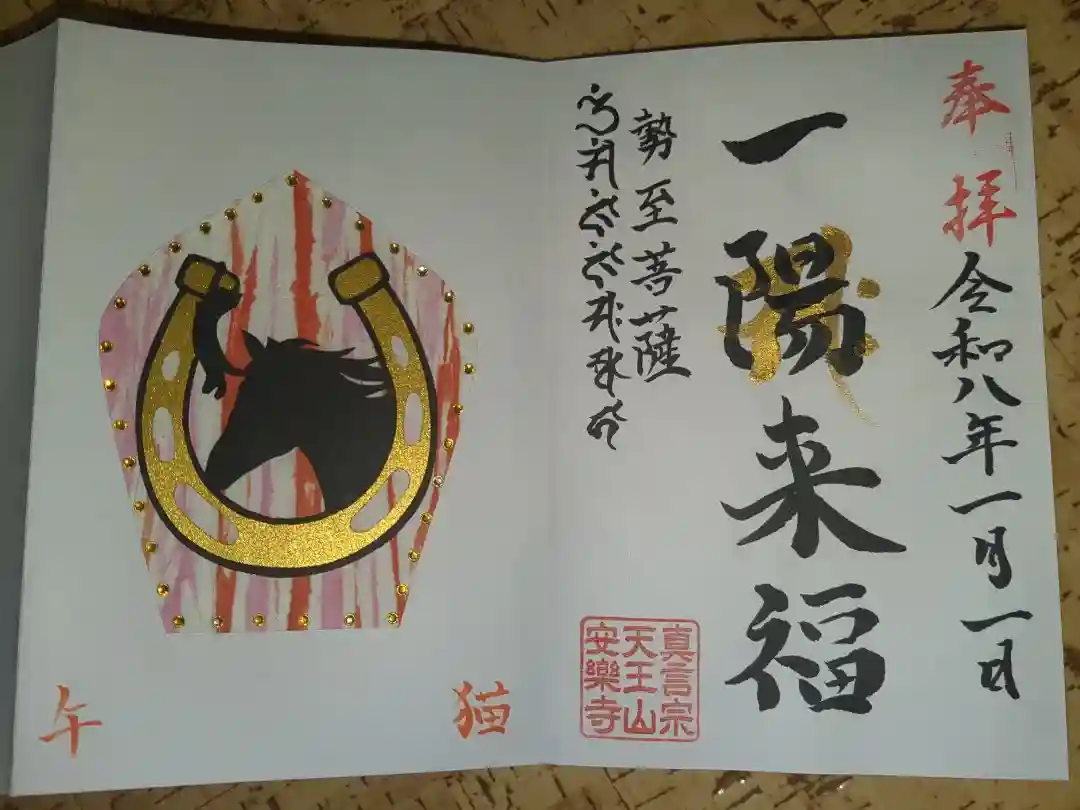 奉拝
令和八年一月一日
一陽来福
勢至菩薩
真言宗
天王山
安樂寺
猫
午